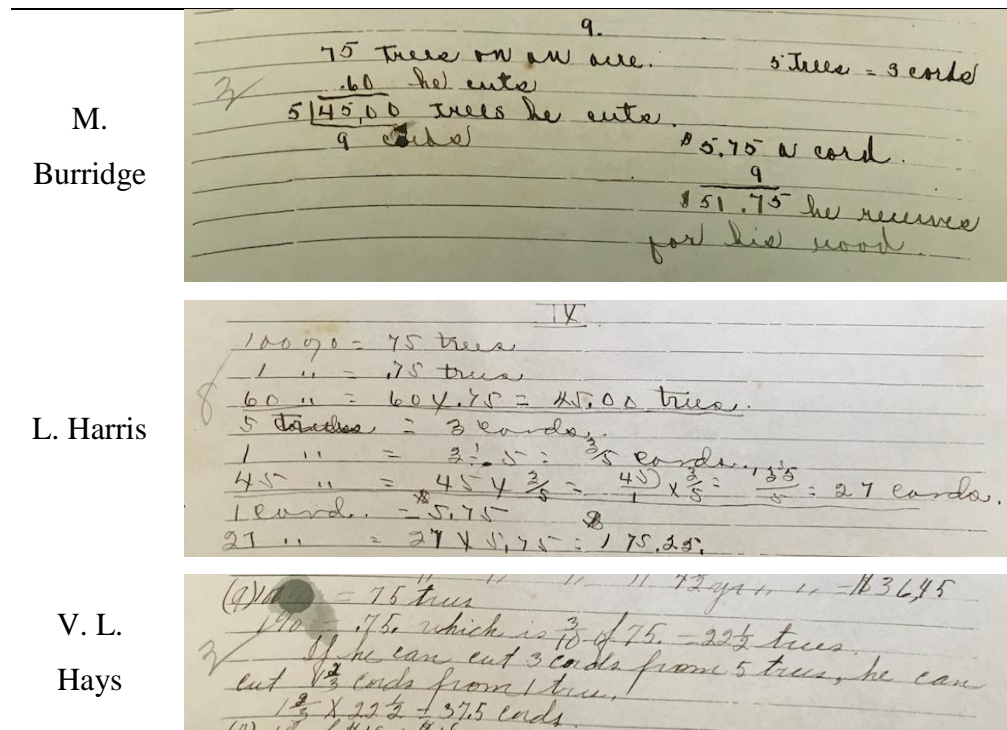 M.
Burridge
9.
75 Trees on an acre. 5 Trees = 3 cords
.60 he cuts
3
5|45,00 Trees he cuts.
9 cords
$5.75 a cord.
9
$51.75 he receives
for his wood.
L. Harris
IX
100% = 75 trees
1 " = .75 trees
8
60 " = 60 X .75 = 45.00 trees.
5 = 3 cords.
1 " = 3 ÷ 5 = 3/5 cords.
45 " = 45 X 3/5 = 45/1 X 3/5 = 135/5 = 27 cords.
1 cord. = $5.75
27 " = 27 X 5.75 = 175.25.
V. L.
Hays
" " " " = $36,45
(9) = 75 trees
1% = .75. which is 3/10 of 75. = 22 1/2 trees.
3
If he can cut 3 cords from 5 trees, he can
cut 1 2/3 cords from 1 tree.
1 2/3 X 22 1/2 = 37.5 cords.